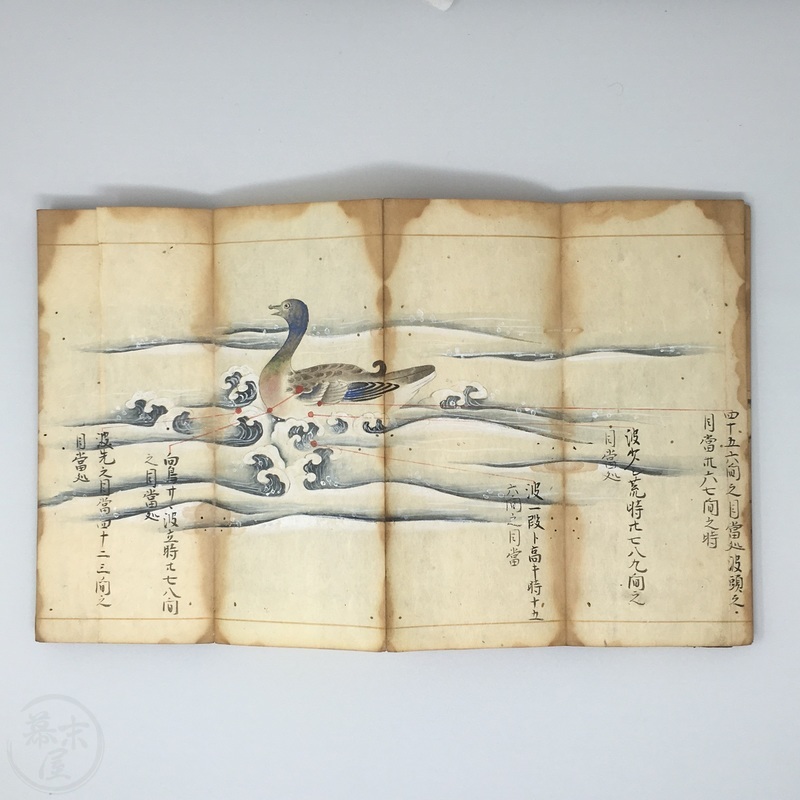 四十五六間之目當処波頭之
目當卅六七間之時
波少シ荒時廿七八九間之
目當処
波一段ト高キ時十五
六間之目當
向鳥ニ波立時廿七八間
之目當処
波先之目當四十二三間之
目當処
幕末屋